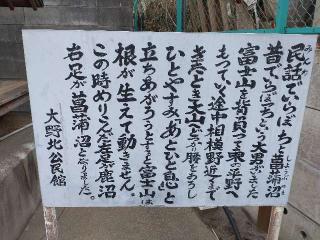 民話でいらぼっちと菖蒲沼
しょうぶぬま
昔でいらぼっちという大男がきました
富士山を背負って東の平野へ
もっていく途中相模野近まで
きたとき大山にどっかり腰をおろし
ひとやすみ。あとひと息と
立ちあがろうとすると富士山は
根が生えて動きません。
この時めりこんだ左足が鹿沼
右足が菖蒲沼となりました。
大野北公民館